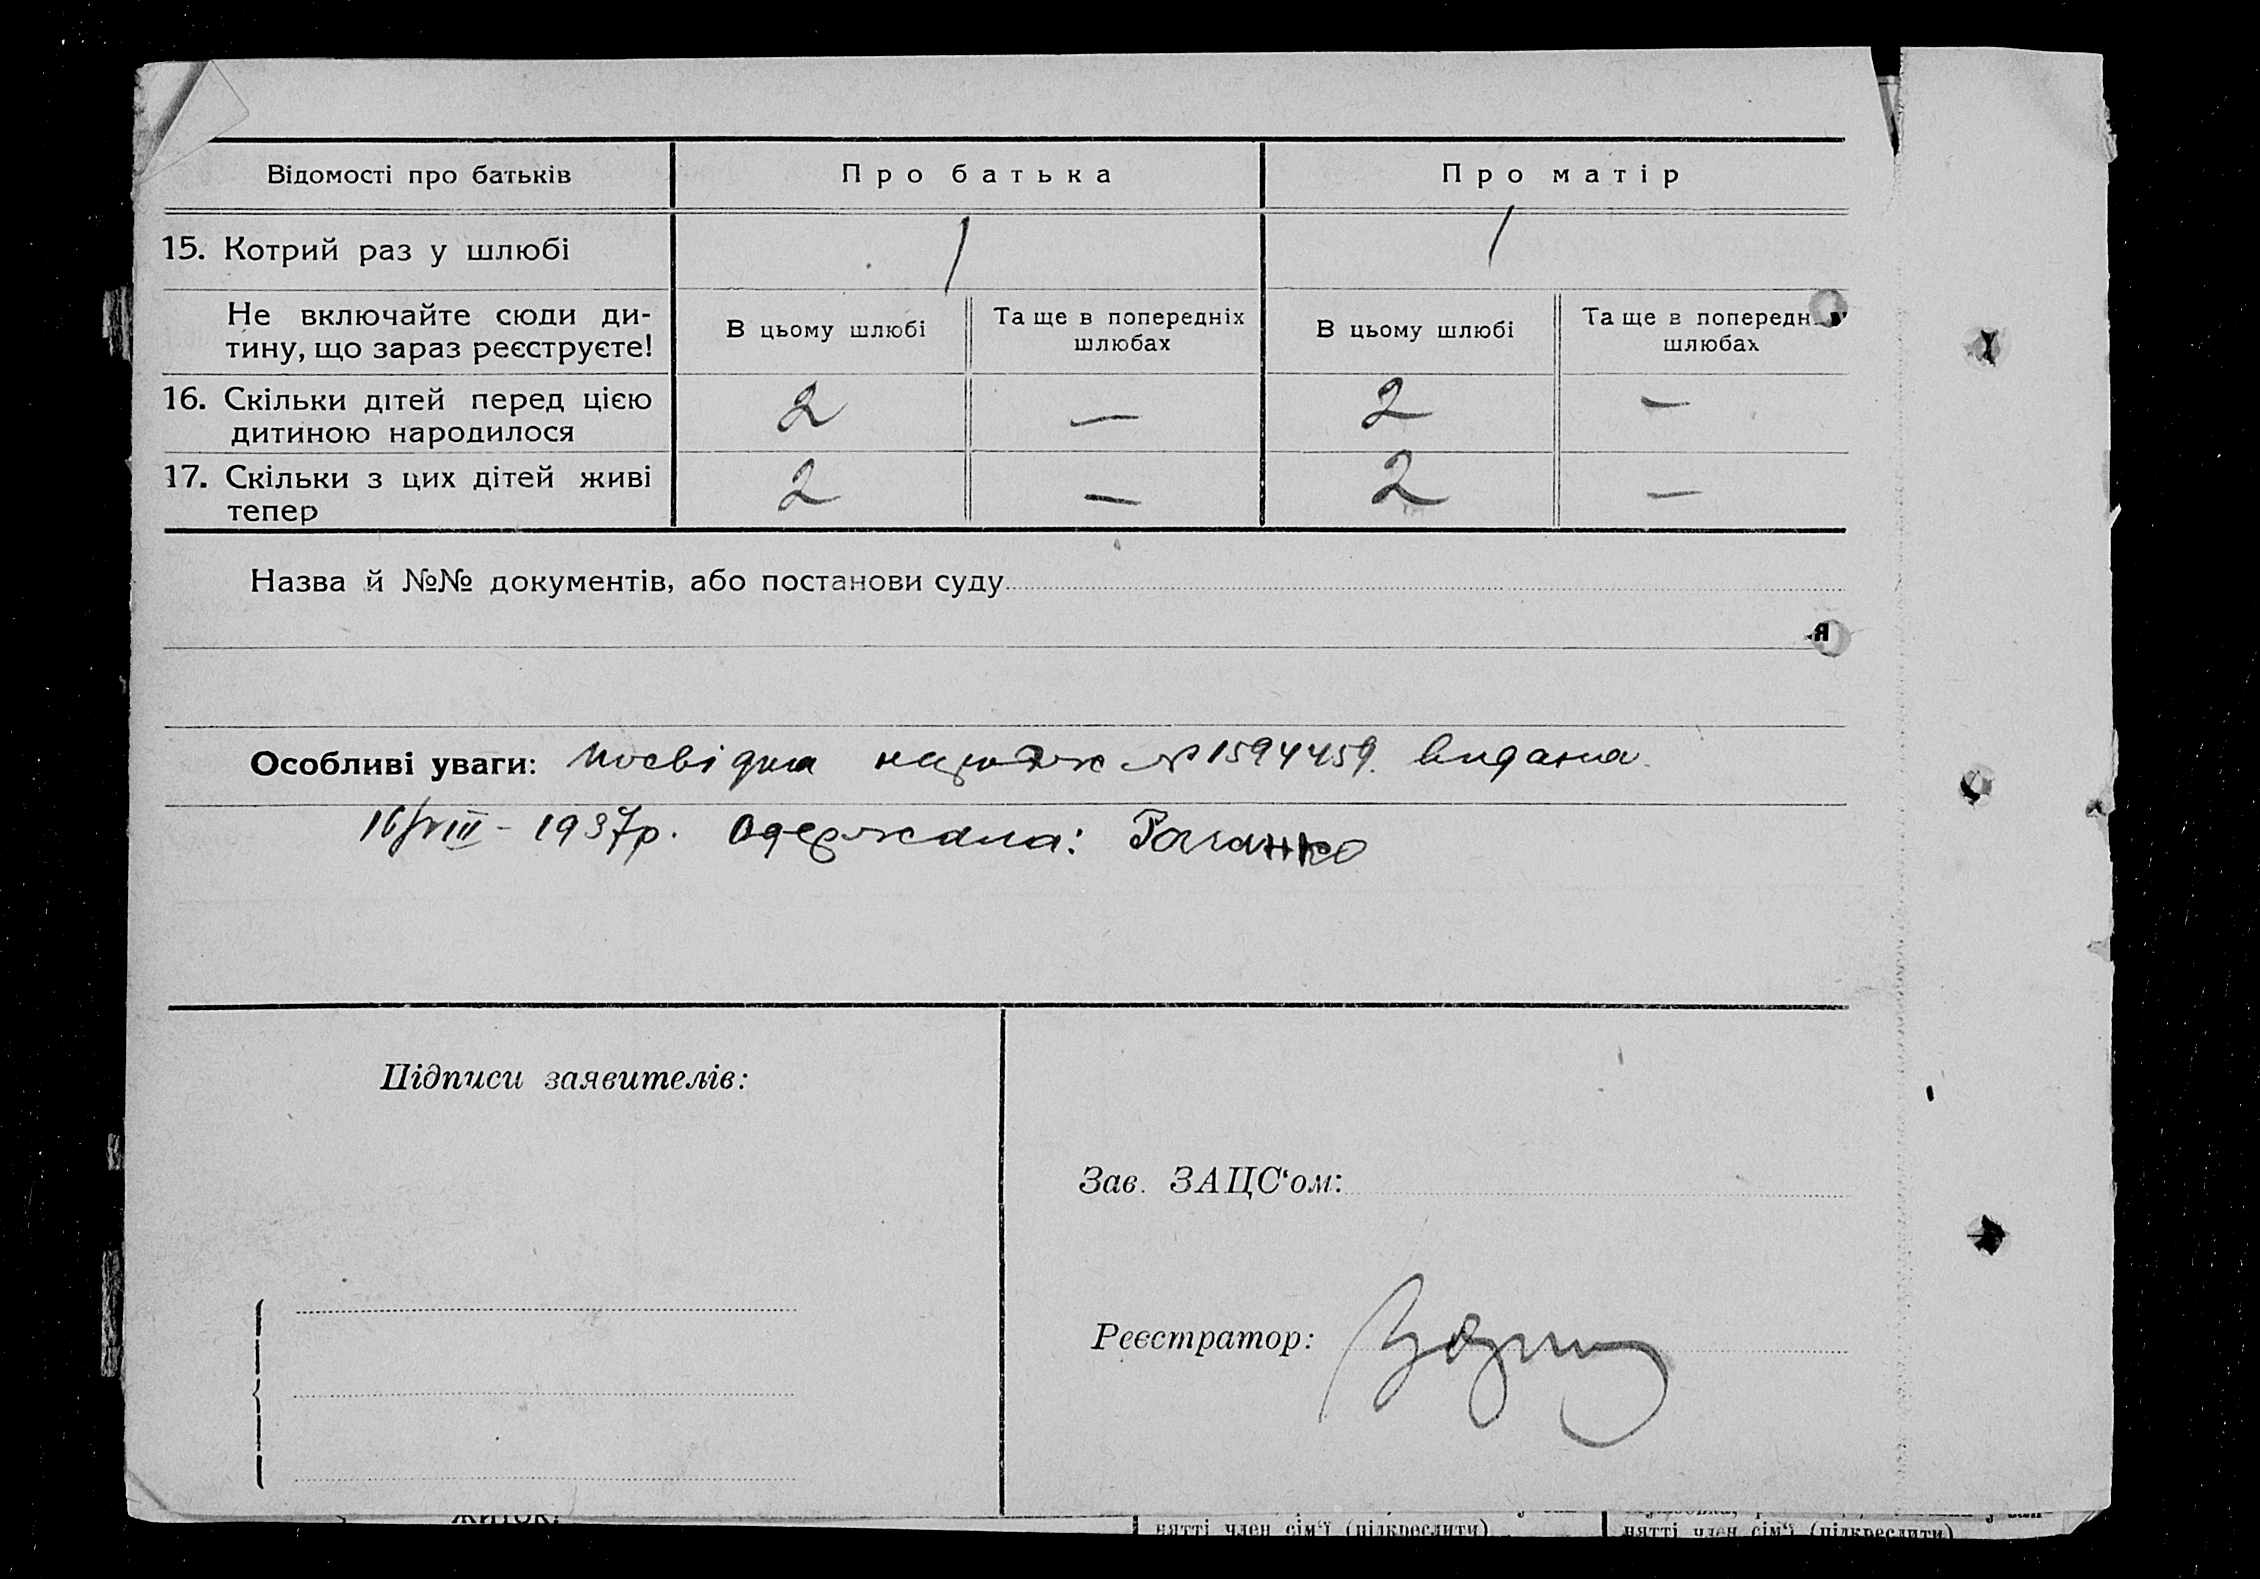 Відомості про батьків Про батька Про матір
15. Котрий раз у шлюбі 1 1
Не включайте сюди ди-
тину, що зараз реєструєте!
В цьому шлюбі
Та ще в попередніх
шлюбах
В цьому шлюбі
Та ще в попередн
шлюбах
16. Скільки дітей перед цією
дитиною народилося
2 — 2 —
17. Скільки з цих дітей живі
тепер
2 — 2 —
Назва й №№ документів, або постанови суду
я
Особливі уваги: посвідка № 1594459. видана.
16/VIII - 1937р. Одержала:
Підписи заявителів:
Зав. ЗАЦС‘ом:
Реєстратор:
житок:
нятті член сім‘ї (підкреслити)
нятті член сім‘ї (підкреслити)